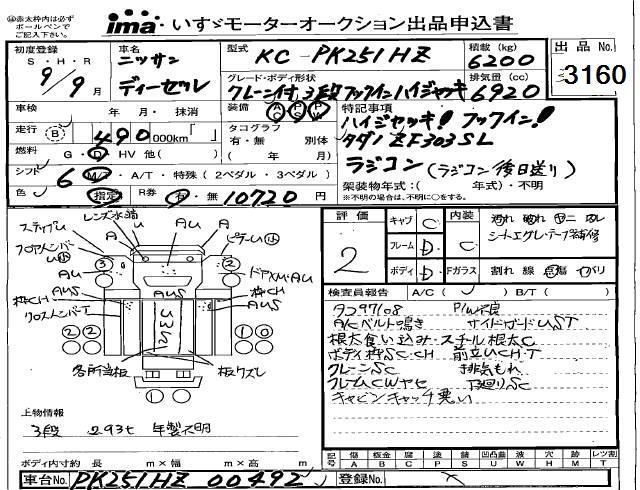 ※赤太枠内は必ず
ボールペンで
ご記入下さい。
ima いすゞモーターオークション出品申込書
初度登録
S・H・R
9/9月
車名
ニッサン
ディーゼル
型式 KC-PK251HZ
積載(kg)
6200
グレード・ボディ形状
クレーン付3段フックインハイジャッキ
排気量(cc)
6920
出品No.
3160
車検 年・月・抹消
装備 AC PS PW
特記事項
ハイジャッキ!フックイン!
走行 B 490 000km「 」
タコグラフ
有・無 別体
( 年 月)
タダノZF303SL
燃料 G・D・HV 他( )
ラジコン(ラジコン後日送り)
シフト 6 M/T・A/T・特殊(2ペダル・3ペダル)
架装物年式:( 年式)・不明
※不明の場合は、不明に○をする。
色 指定 R券 有・無 10720円
評価
2
キャブ C
フレーム D
ボディ D
内装 C
Fガラス
汚れ 破れ ヤニ
割れ 線 点傷 バリ
検査員報告 A/C( ✓ ) B/T( )
タコ97108 P/W不良
A/Cベルト鳴き サイドガードUST
根太食い込み・スチール根太C
ボディ枠SC・CH 前立UCH・T
クレーンSC 排気もれ
フレームCWヤセ 下廻りSC
キャビンキャッチ悪い
ステップU
レンズ水滴
U
A
AU
A
ピラーU
フロアメンバー
U
AU
3
2
ドアXM・AU
枠CH
AUS
AUS
枠CH
AUS
クロスメンバーT
22
10
各所当板
板ウスレ
1
上物情報
3段 2.93t 年製不明
ボディ内寸約 長 m×幅 m×高 m
記号
傷 A
板金 B
腐 C
塗 P
錆 S
凹凸曲 U
波 W
穴 H
交 X
大 M
割 T
レンズ割
車台No. PK251HZ 00492
登録No.